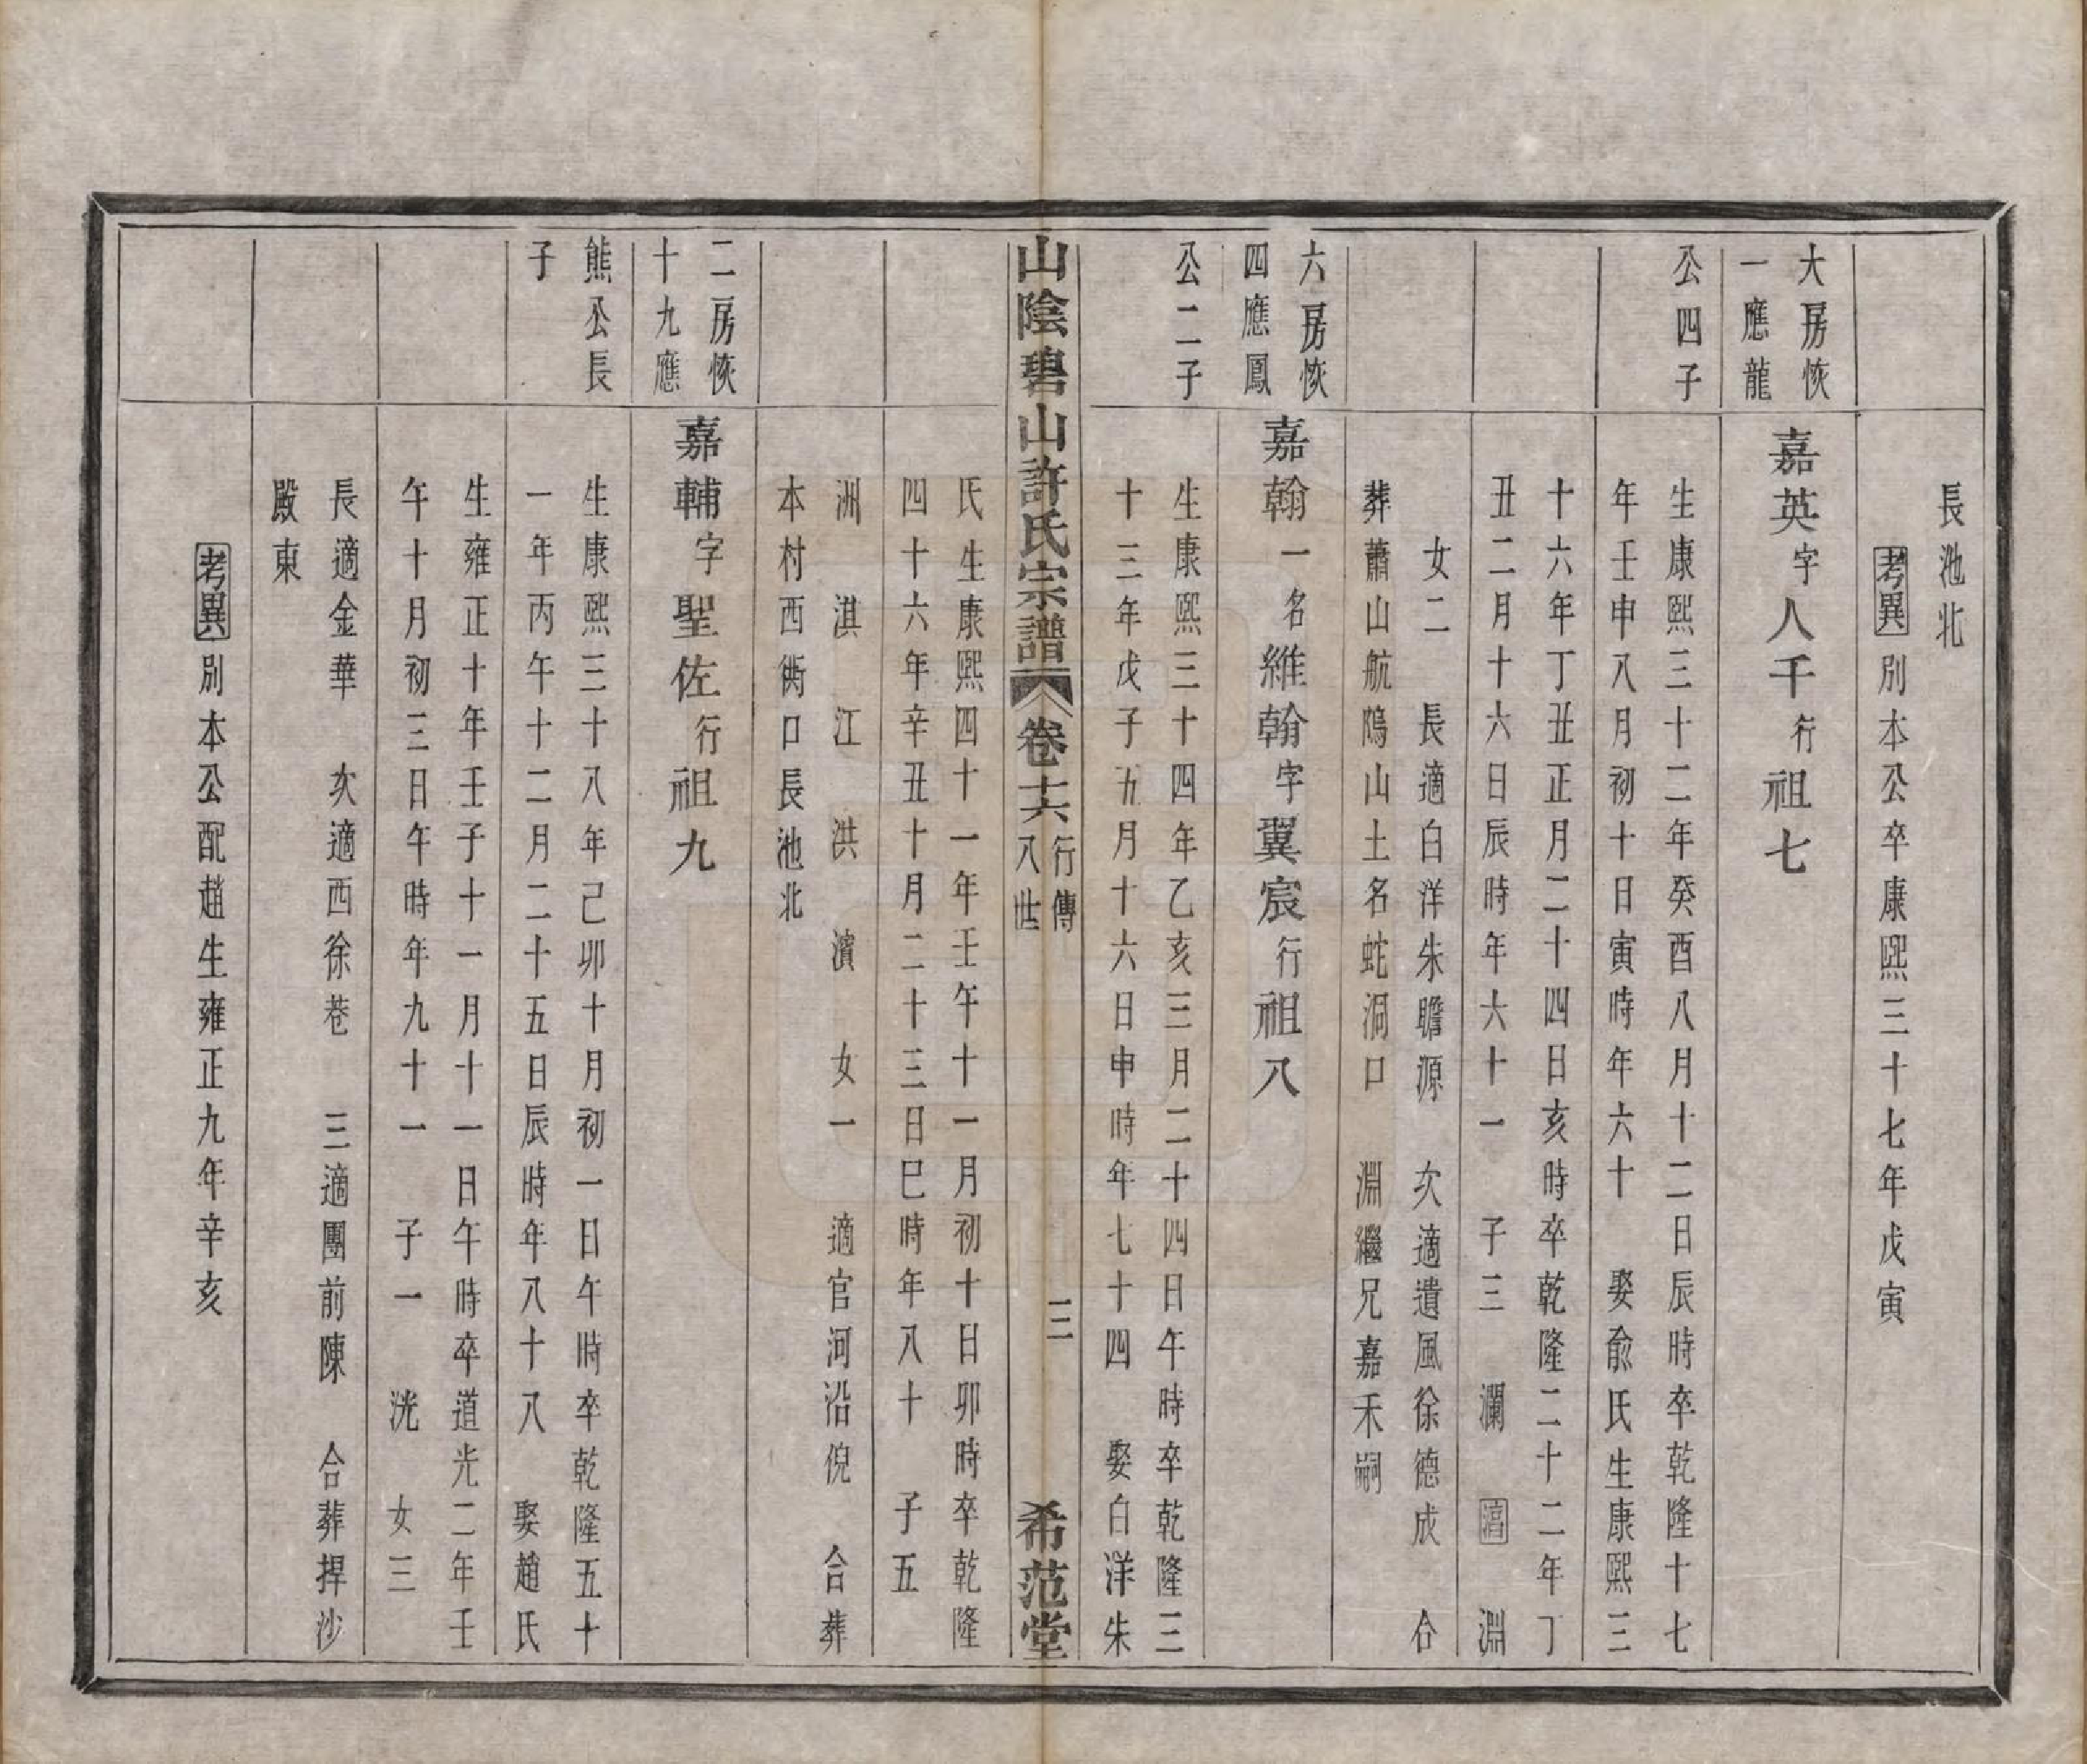 長池北
考異別本公卒康熙三十七年戊寅
大房恢
一應龍
公四子
嘉英字人千行祖七
生康熙三十二年癸酉八月十二日辰時卒乾隆十七
年壬申八月初十日寅時年六十　娶俞氏生康熙三
十六年丁丑正月二十四日亥時卒乾隆二十二年丁
丑二月十六日辰時年六十一　子三　瀾　濇　淵
女二　長適白洋朱瞻源　次適遺風徐德成　合
葬蕭山航塢山土名蛇洞口　淵繼兄嘉禾嗣
六房恢
四應鳳
公二子
嘉翰一名維翰字翼宸行祖八
生康熙三十四年乙亥三月二十四日午時卒乾隆三
十三年戊子五月十六日申時年七十四　娶白洋朱
山陰碧山許氏宗譜　卷十六　行傳
八世
三
希范堂
氏生康熙四十一年壬午十一月初十日卯時卒乾隆
四十六年辛丑十月二十三日巳時年八十　子五
洲　淇　江　洪　濱　女一　適官河沿倪　合葬
本村西衖口長池北
二房恢
十九應
熊公長
子
嘉輔字聖佐行祖九
生康熙三十八年己卯十月初一日午時卒乾隆五十
一年丙午十二月二十五日辰時年八十八　娶趙氏
生雍正十年壬子十一月十一日午時卒道光二年壬
午十月初三日午時年九十一　子一　洸　女三
長適金華　次適西徐巷　三適團前陳　合葬捍沙
殿東
考異別本公配趙生雍正九年辛亥